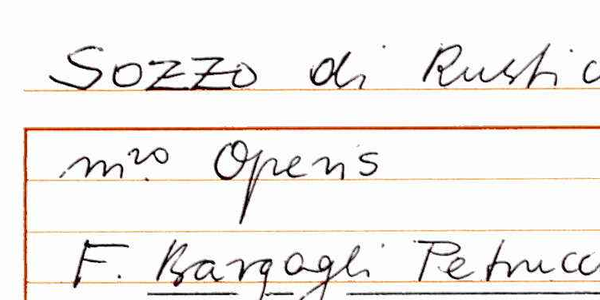 Sozzo di Rustic
m.ro Operis
F. Bargagli Petrucc